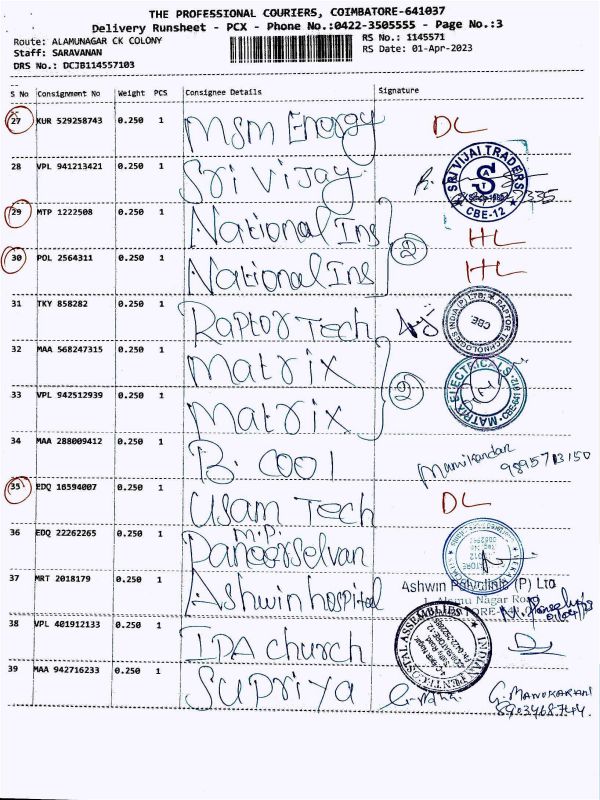 THE PROFESSIONAL COURIERS, COIMBATORE-641037
Delivery Runsheet - PCX - Phone No.:0422-3505555 - Page No.:3
Route: ALAMUNAGAR CK COLONY
RS No.: 1145571
Staff: SARAVANAN
RS Date: 01-Apr-2023
DRS No.: DCJB114557103
S No Consignment No Weight PCS Consignee Details Signature
27 KUR 529258743 0.250 1 MSM Energy DL
28 VPL 941213421 0.250 1 Sri Vijay SRI VIJAI TRADERS CBE-12
29 MTP 1222508 0.250 1 National Ins HL
2
30 POL 2564311 0.250 1 National Ins HL
31 TKY 858282 0.250 1 Raptor Tech RAPTOR TECHNOLOGIES INDIA (P) LTD. CBE
32 MAA 568247315 0.250 1 Matrix
2 MATRIX ELECTRICALS CBE-641012
33 VPL 942512939 0.250 1 Matrix
34 MAA 288009412 0.250 1 B. COOl Manikandan
35 EDQ 16594007 0.250 1 Usam Tech DL
36 EDQ 22262265 0.250 1 M.P. Paneerselvan
37 MRT 2018179 0.250 1 Ashwin hospital Ashwin Polyclinic (P) Ltd
1, Alamu Nagar Road
38 VPL 401912133 0.250 1 IPA church INDIAN PENTECOSTAL ASSEMBLIES
39 MAA 942716233 0.250 1 Supriya G. MANOKARAN